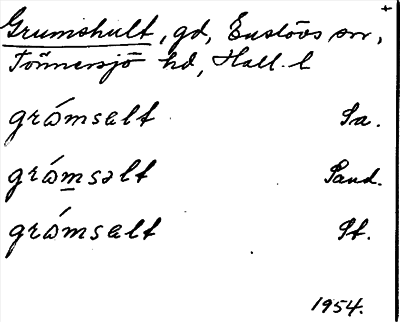 Grumshult, gd, Enslövs sn,
Tönnersjö hd, Hall. l
grómsɐlt Sa.
grómsɐlt Sand.
grómsɐlt St.
1954.